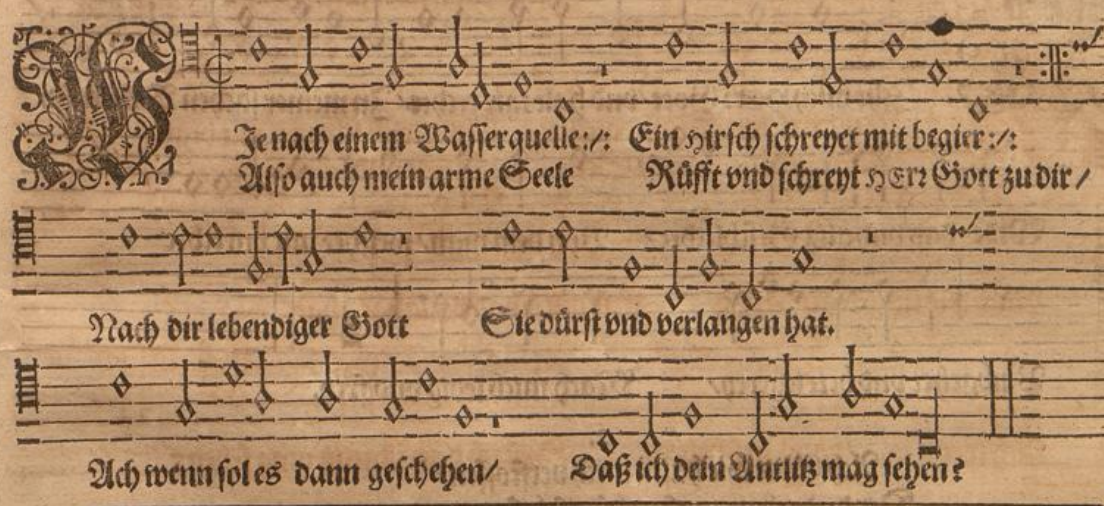 WJe nach einem Wasserquelle:/: Ein Hirsch schreyet mit begier:/:
Also auch mein arme Seele Rüfft vnd schreyt HErr Gott zu dir /
Nach dir lebendiger Gott Sie dürst vnd verlangen hat.
Ach wenn sol es dann geschehen/ Daß ich dein Antlitz mag sehen?